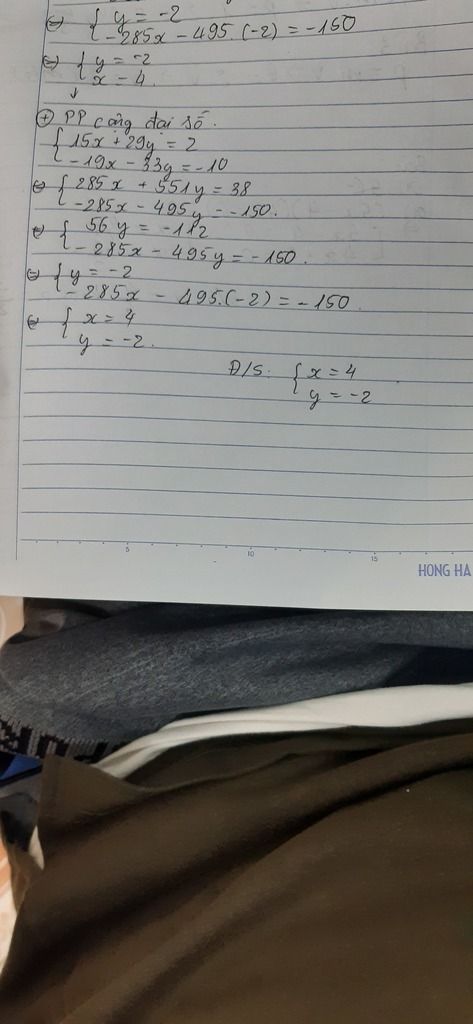 ⇔ { y = -2
-285x - 495.(-2) = -150
⇔ { y = -2
x = 4.
⊕ PP cộng đại số.
{ 15x + 29y = 2
-19x - 33y = -10
⇔ { 285x + 551y = 38
-285x - 495y = -150.
⇔ { 56y = -112
-285x - 495y = -150.
⇔ { y = -2
-285x - 495.(-2) = -150
⇔ { x = 4
y = -2.
Đ/S: { x = 4
y = -2
5 10 15
HONG HA